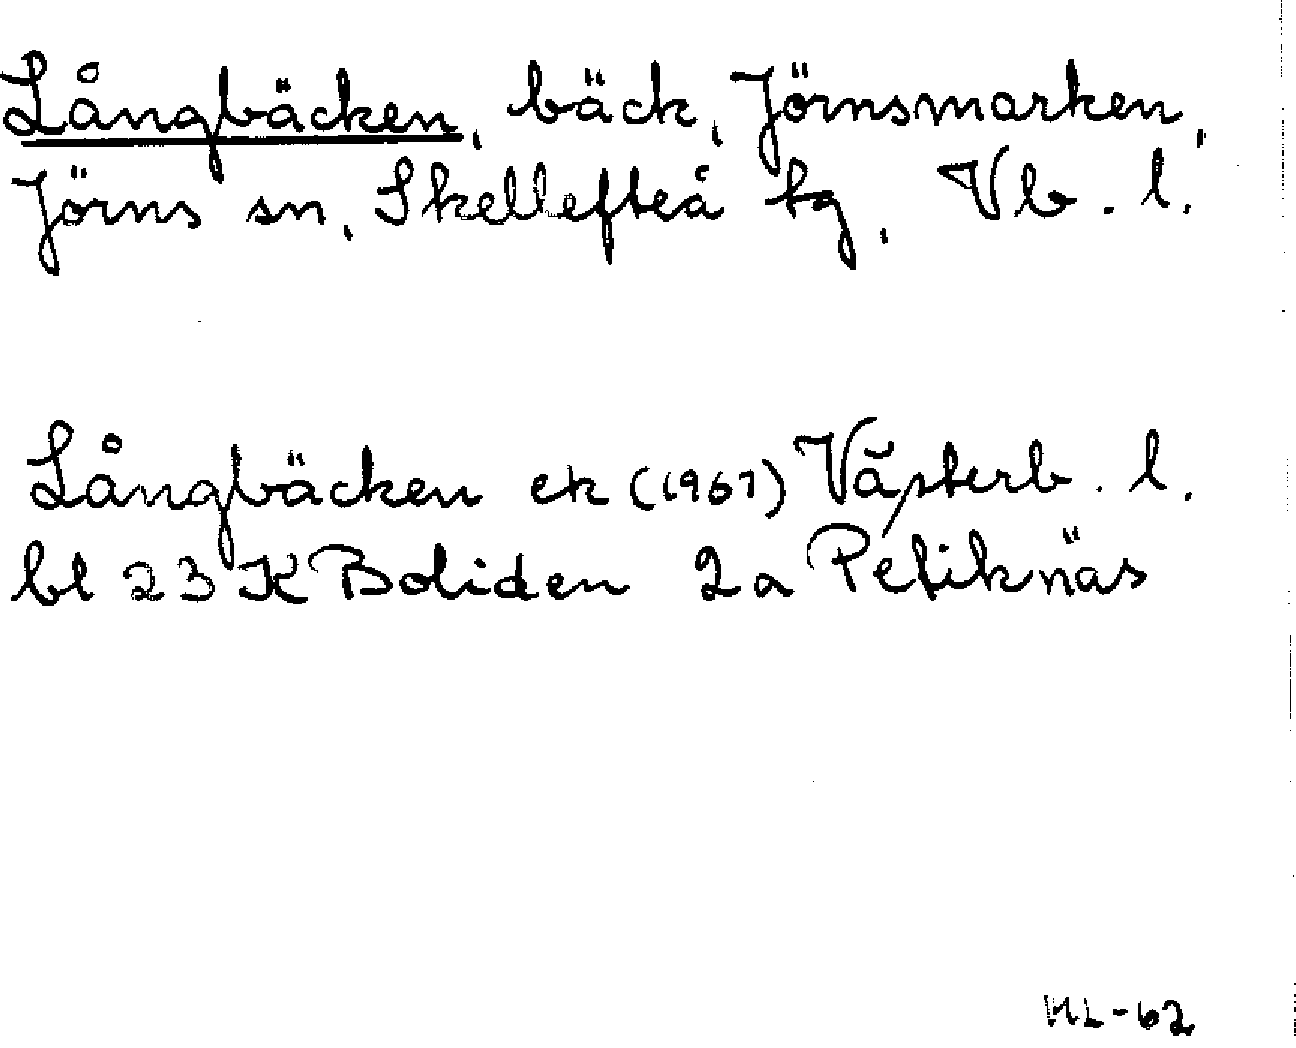 Långbäcken, bäck, Jörnsmarken,
Jörns sn, Skellefteå tg, Vb. l.
Långbäcken ek (1961) Västerb. l.
bl 23 K Boliden 2a Petiknäs
HL-62